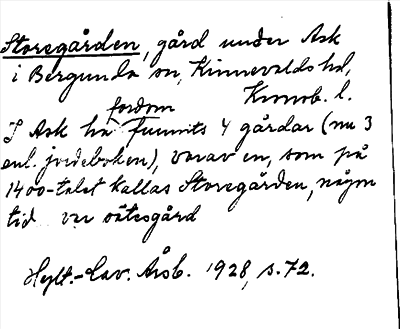 Storegården, gård under Ask
i Bergunda sn, Kinnevalds hd,
Kronob. l.
I Ask ha fordom funnits 4 gårdar (nu 3
enl. jordeboken), varav en, som på
1400-talet kallas Storegården, någon
tid var sätesgård
Hylt.-Cav. Årsb. 1928, s. 72.